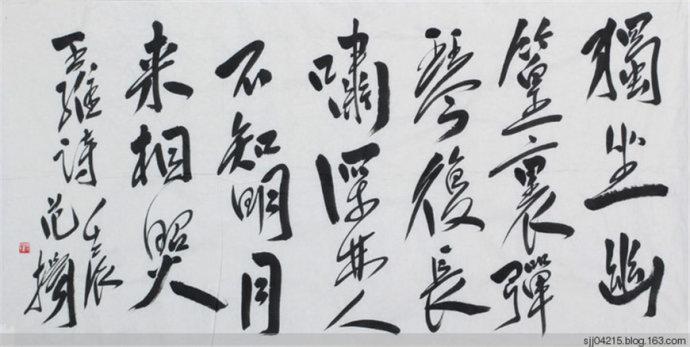 獨坐幽
篁裏彈
琴復長
嘯深林人
不知明月
来相照
王維詩
壬辰
范
sjj04215.blog.163.com